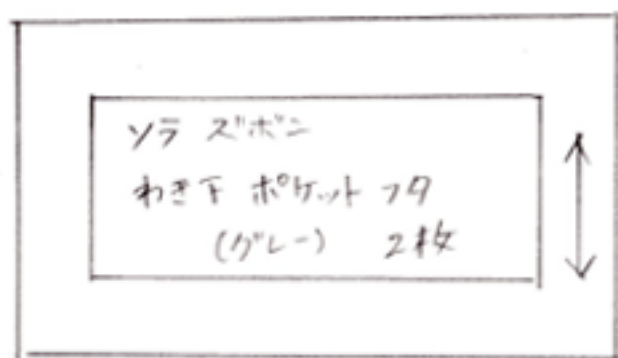 ソラ ズボン
わき下 ポケット フタ
(グレー) 2枚